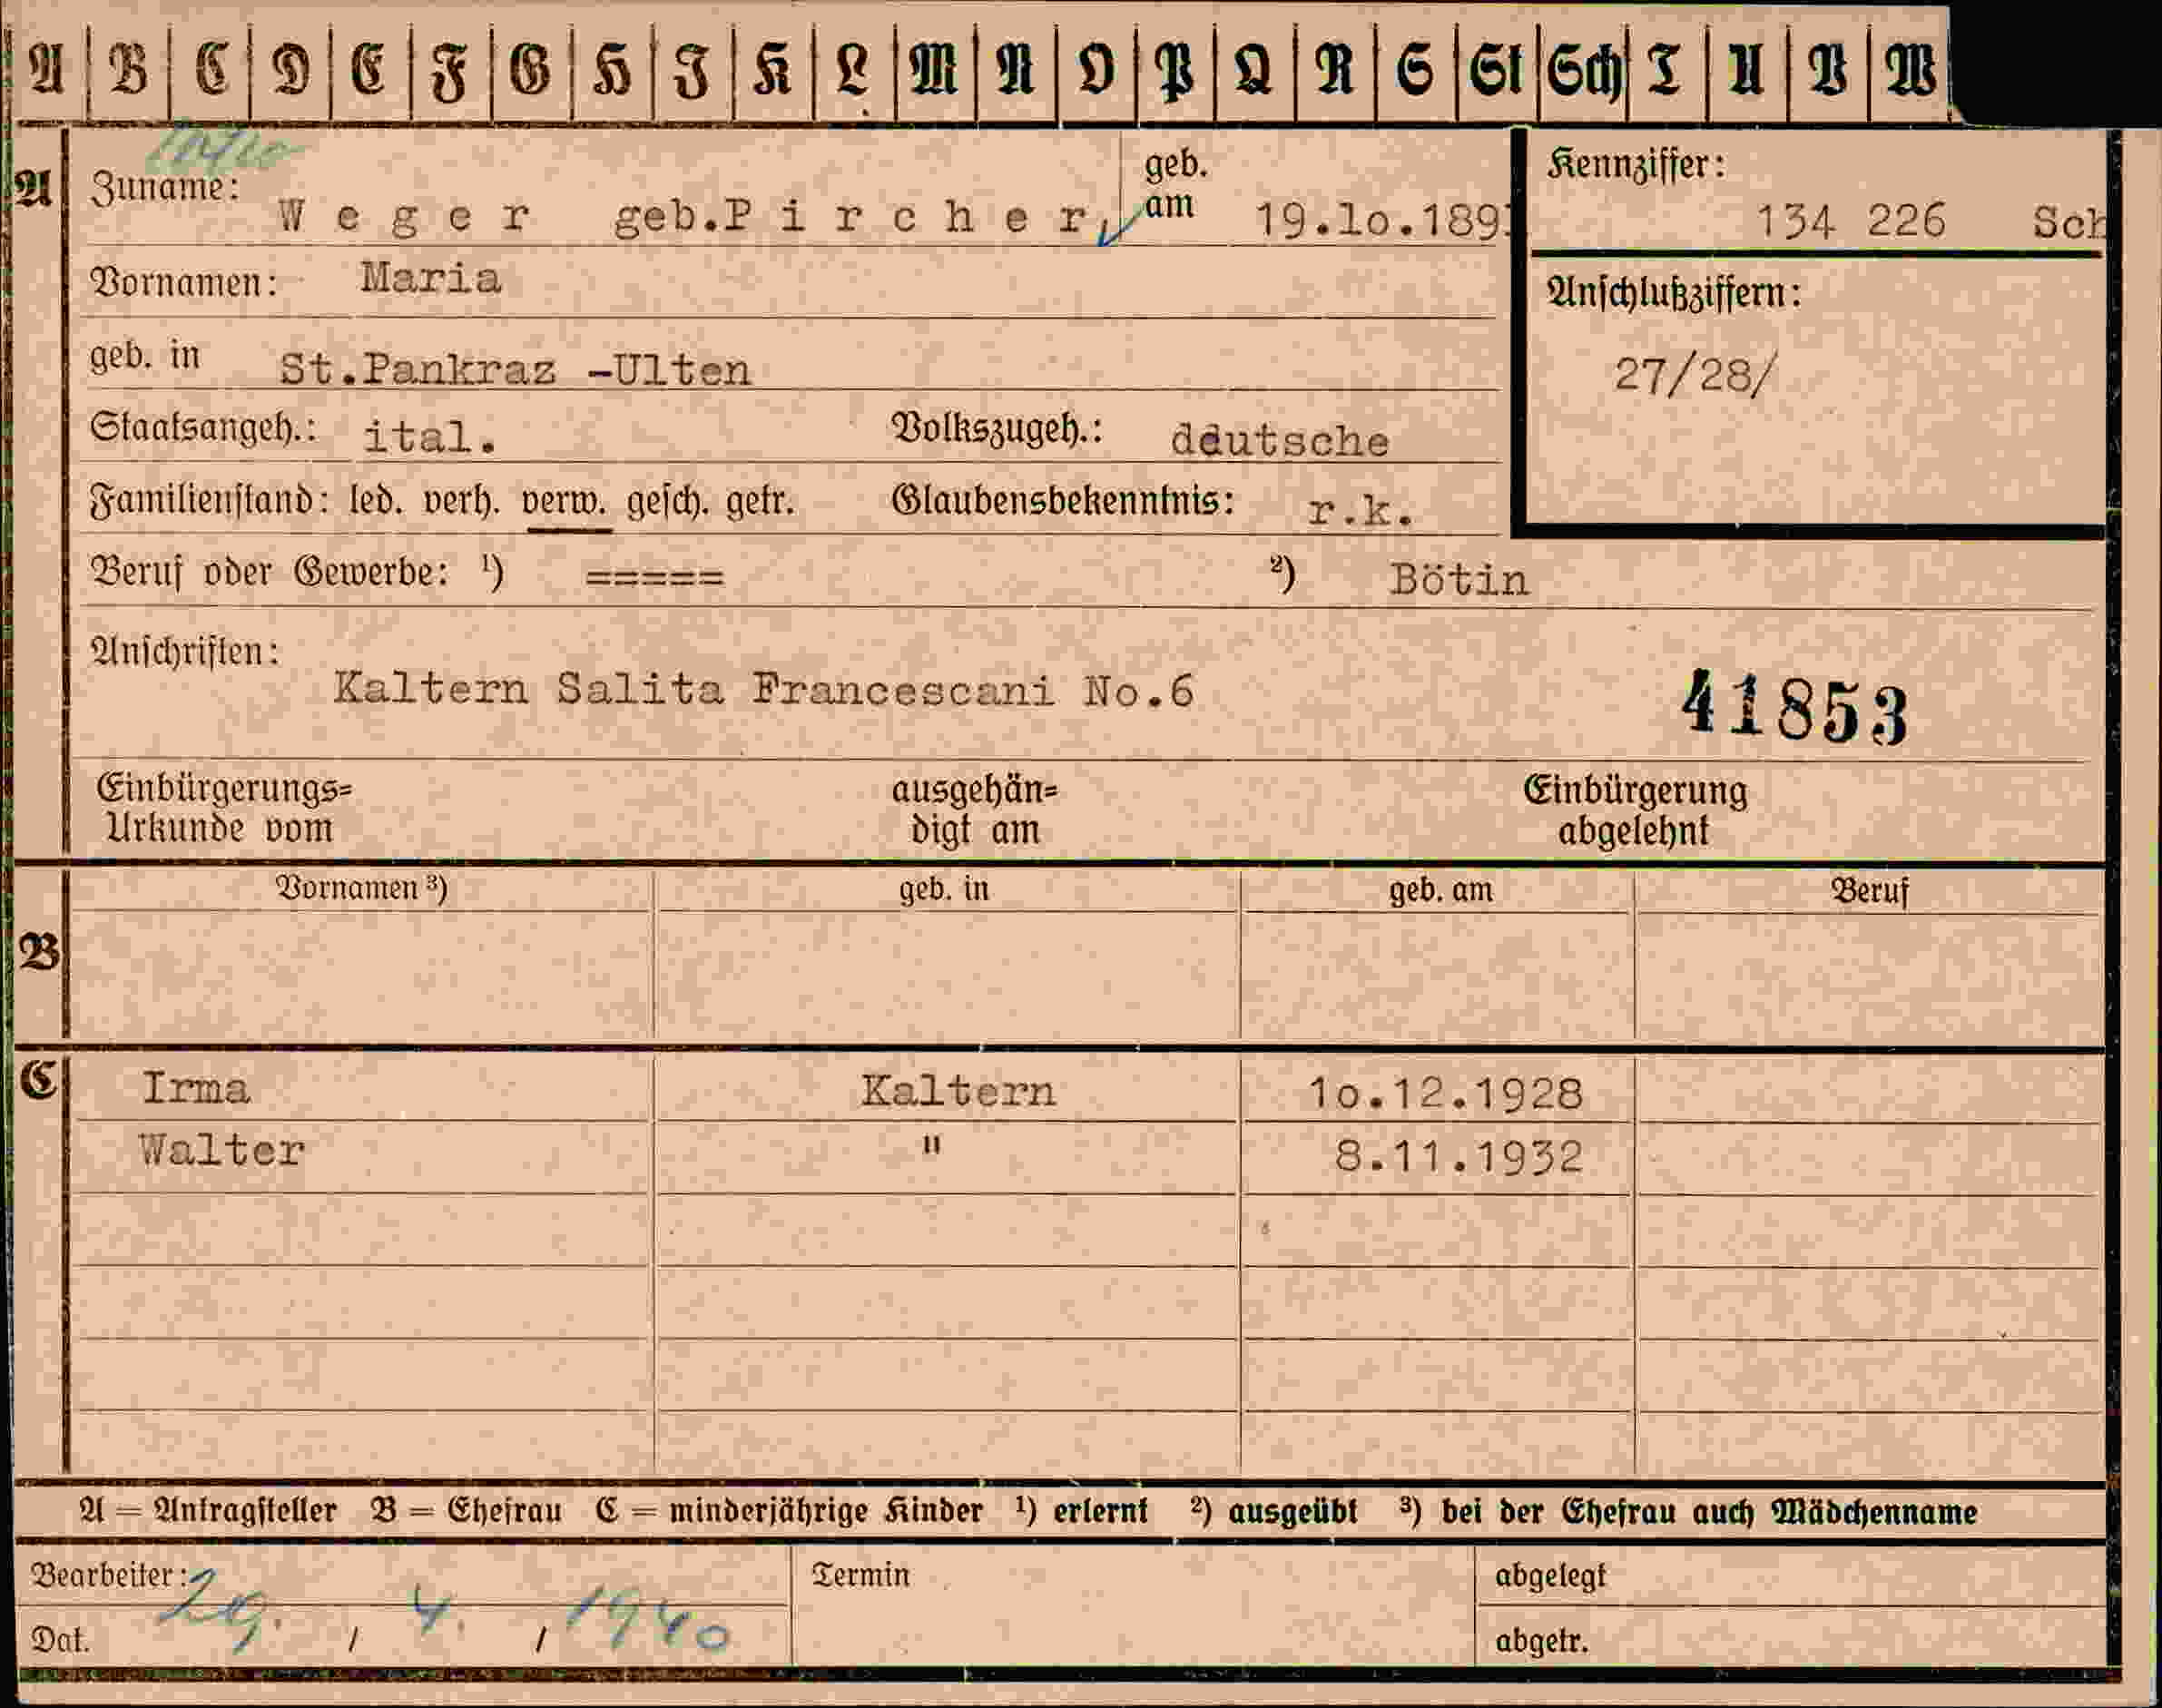 A B C D E F G H J K L M N O P Q R S St Sch T U V W
A
Zuname: Weger geb.Pircher, geb. am 19.1o.189
Kennziffer: 134 226 Sch
Vornamen: Maria
Anschlußziffern:
geb. in St.Pankraz -Ulten
27/28/
Staatsangeh.: ital. Volkszugeh.: ddutsche
Familienstand: led. verh. verw. gesch. getr. Glaubensbekenntnis: r.k.
Beruf oder Gewerbe: ¹) ===== ²) Bötin
Anschriften:
Kaltern Salita Francescani No.6
41853
Einbürgerungs= ausgehän= Einbürgerung
Urkunde vom digt am abgelehnt
Vornamen ³) geb. in geb. am Beruf
B
C
Irma Kaltern 1o.12.1928
Walter " 8.11.1932
A = Antragsteller B = Ehefrau C = minderjährige Kinder ¹) erlernt ²) ausgeübt ³) bei der Ehefrau auch Mädchenname
Bearbeiter: Termin abgelegt
Dat. 29. / 4. / 1940 abgetr.